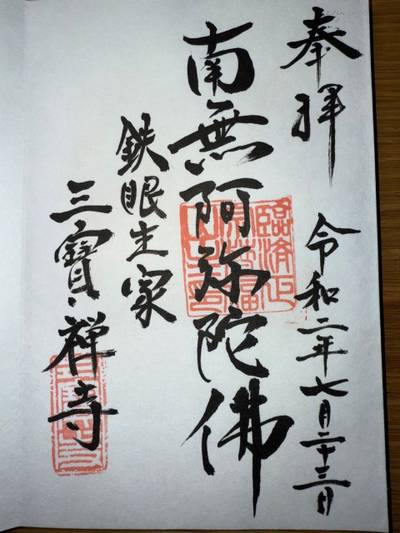 奉拝
令和二年七月二十三日
南無阿弥陀佛
鉄眼生家
三寶禅寺